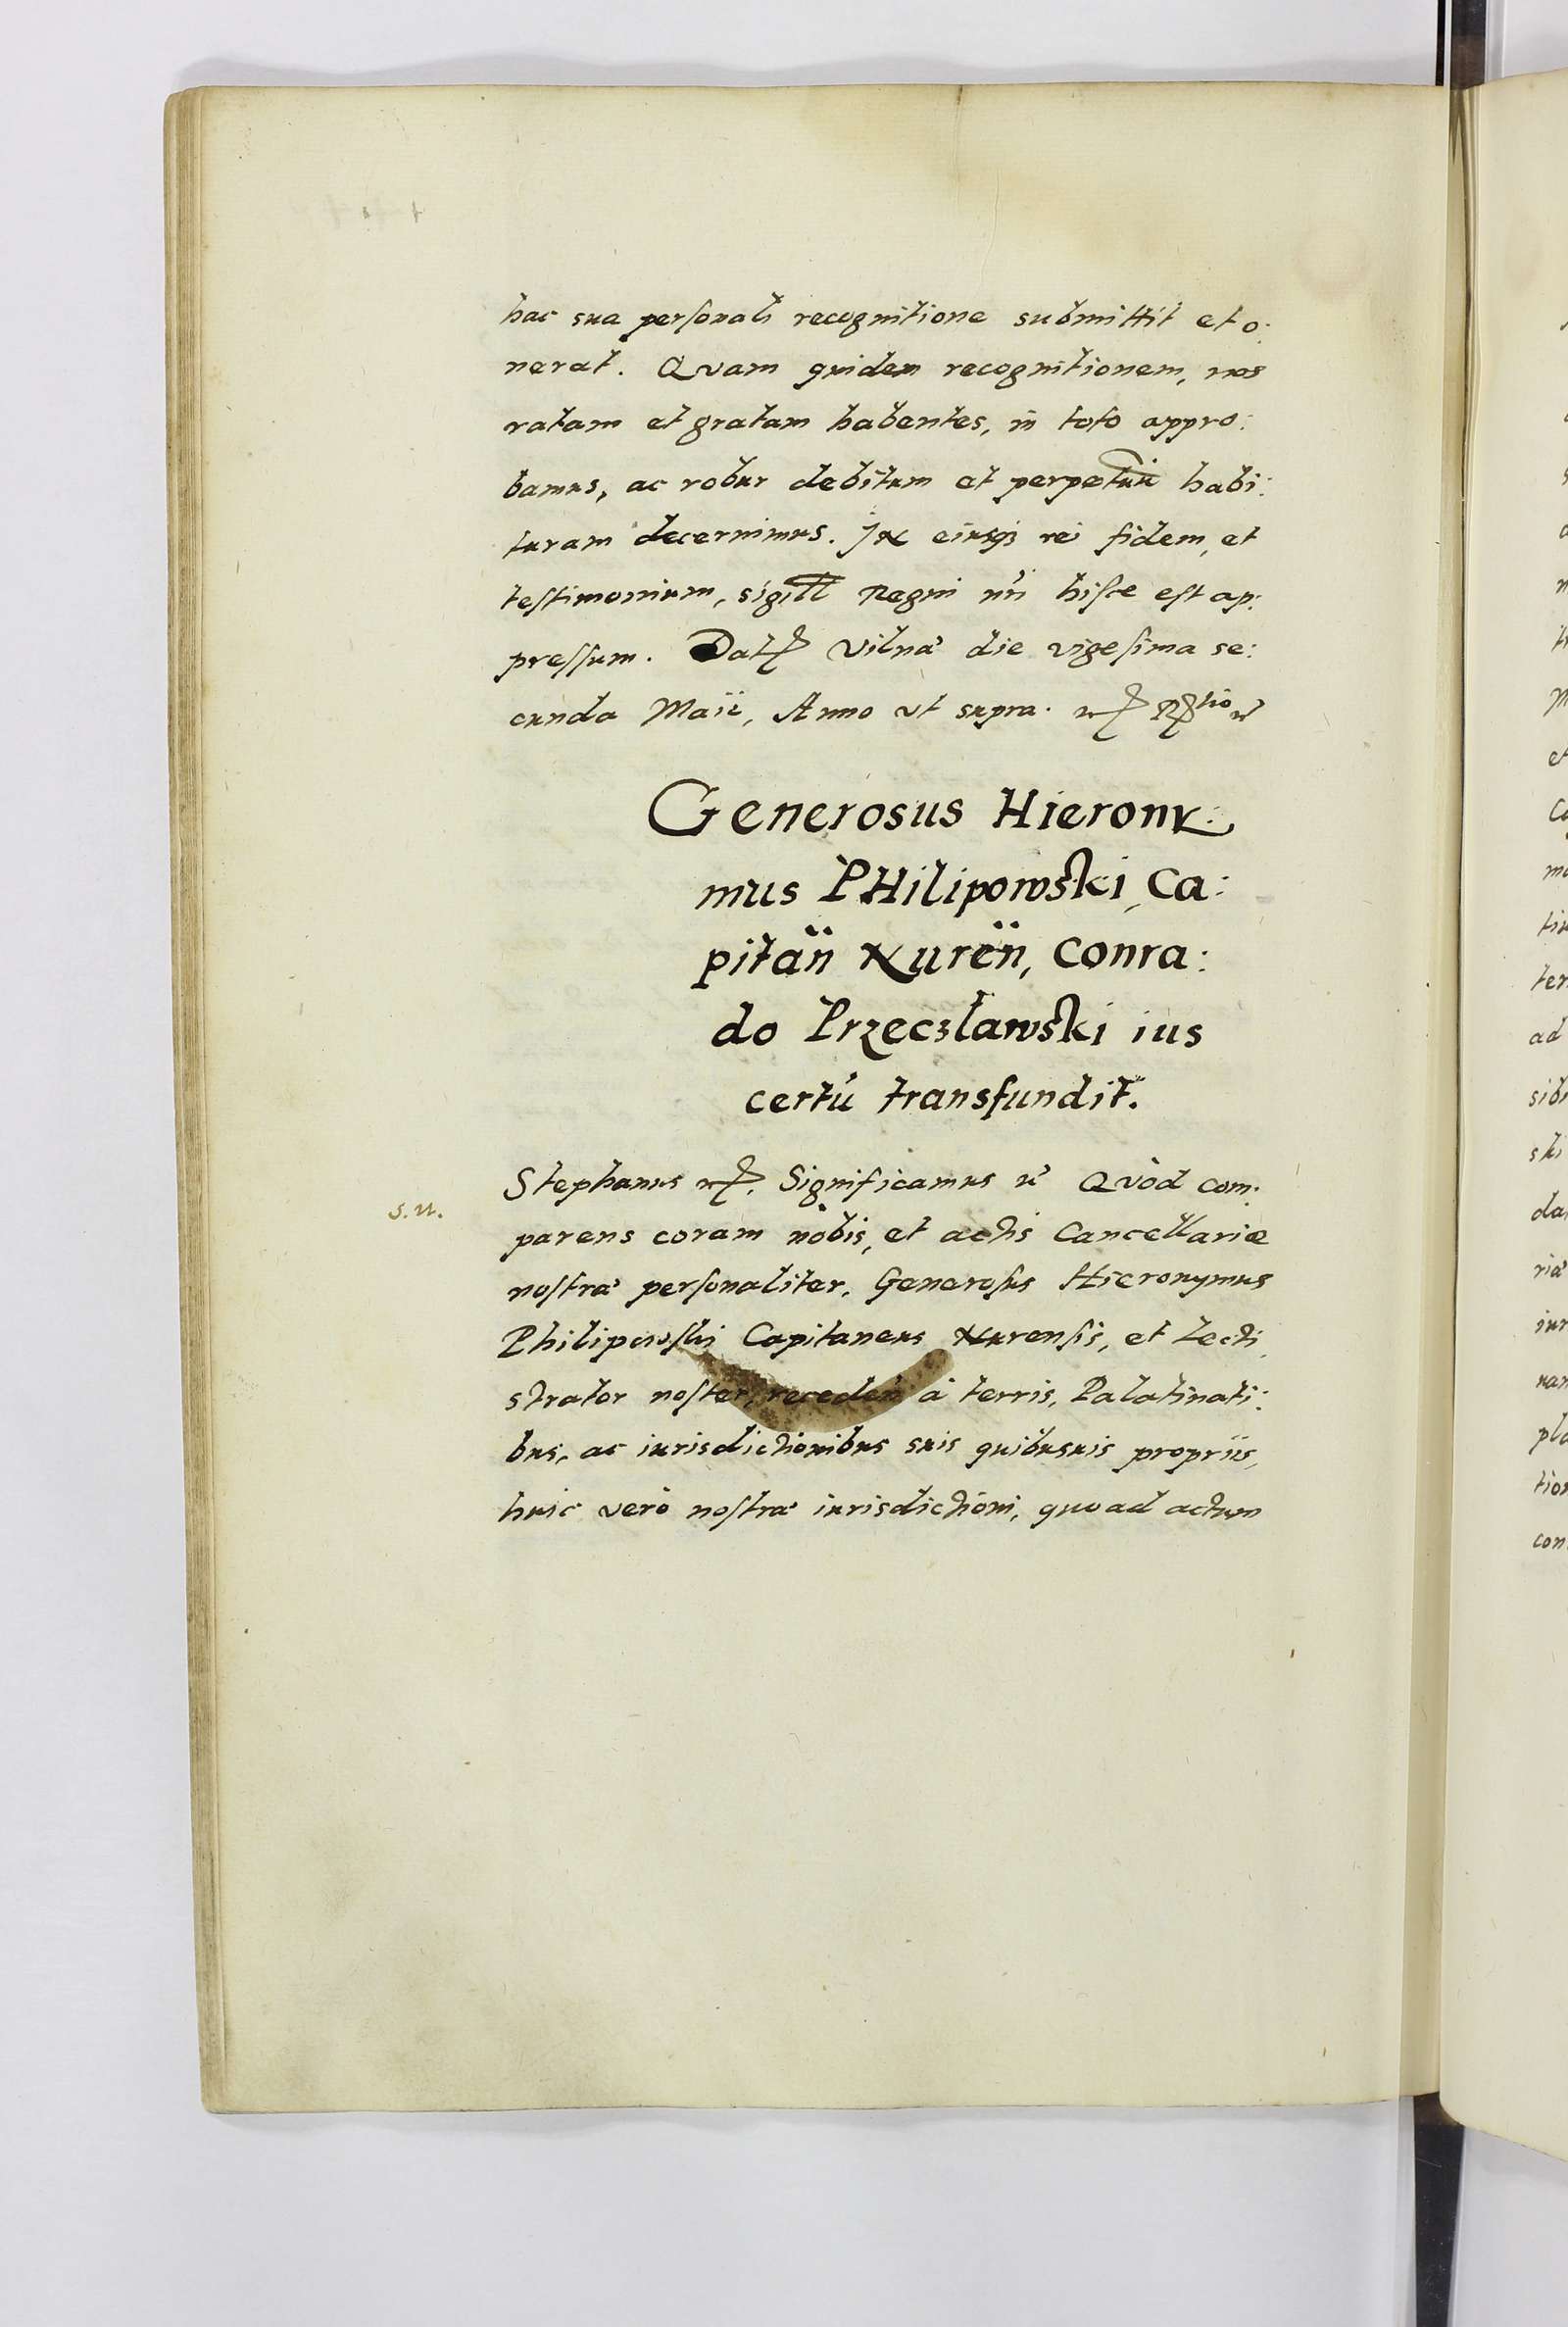 hac sua personali recognitione submittit et o:
nerat. Quam quidem recognitionem, nos
ratam et gratam habentes, in toto appro:
bamus, ac robur debitum et perpetuū habi:
turam decernimus. In eiusq3 rei fidem, et
testimonium, sigill Regni nri hisce est ap:
pressum. Dat Vilnæ die vigesima se:
cunda Maii, Anno ut supra.
Generosus Hierony:
mus Philipowski, Ca:
pitan̈ Nuren̈, Conra:
do Przeczlawski ius
certū transfundit.
Stephanus Significamus Quòd com:
s.n.
parens coram nobis, et actis Cancellariæ
nostræ personaliter, Generosus Hieronymus
Philipowski Capitaneus Nurensis, et Lecti
strator noster, receden à terris, Palatinati:
bus, ac iurisdictionibus suis quibusuis propriis,
huic verò nostræ iurisdictioni, quo ad actum